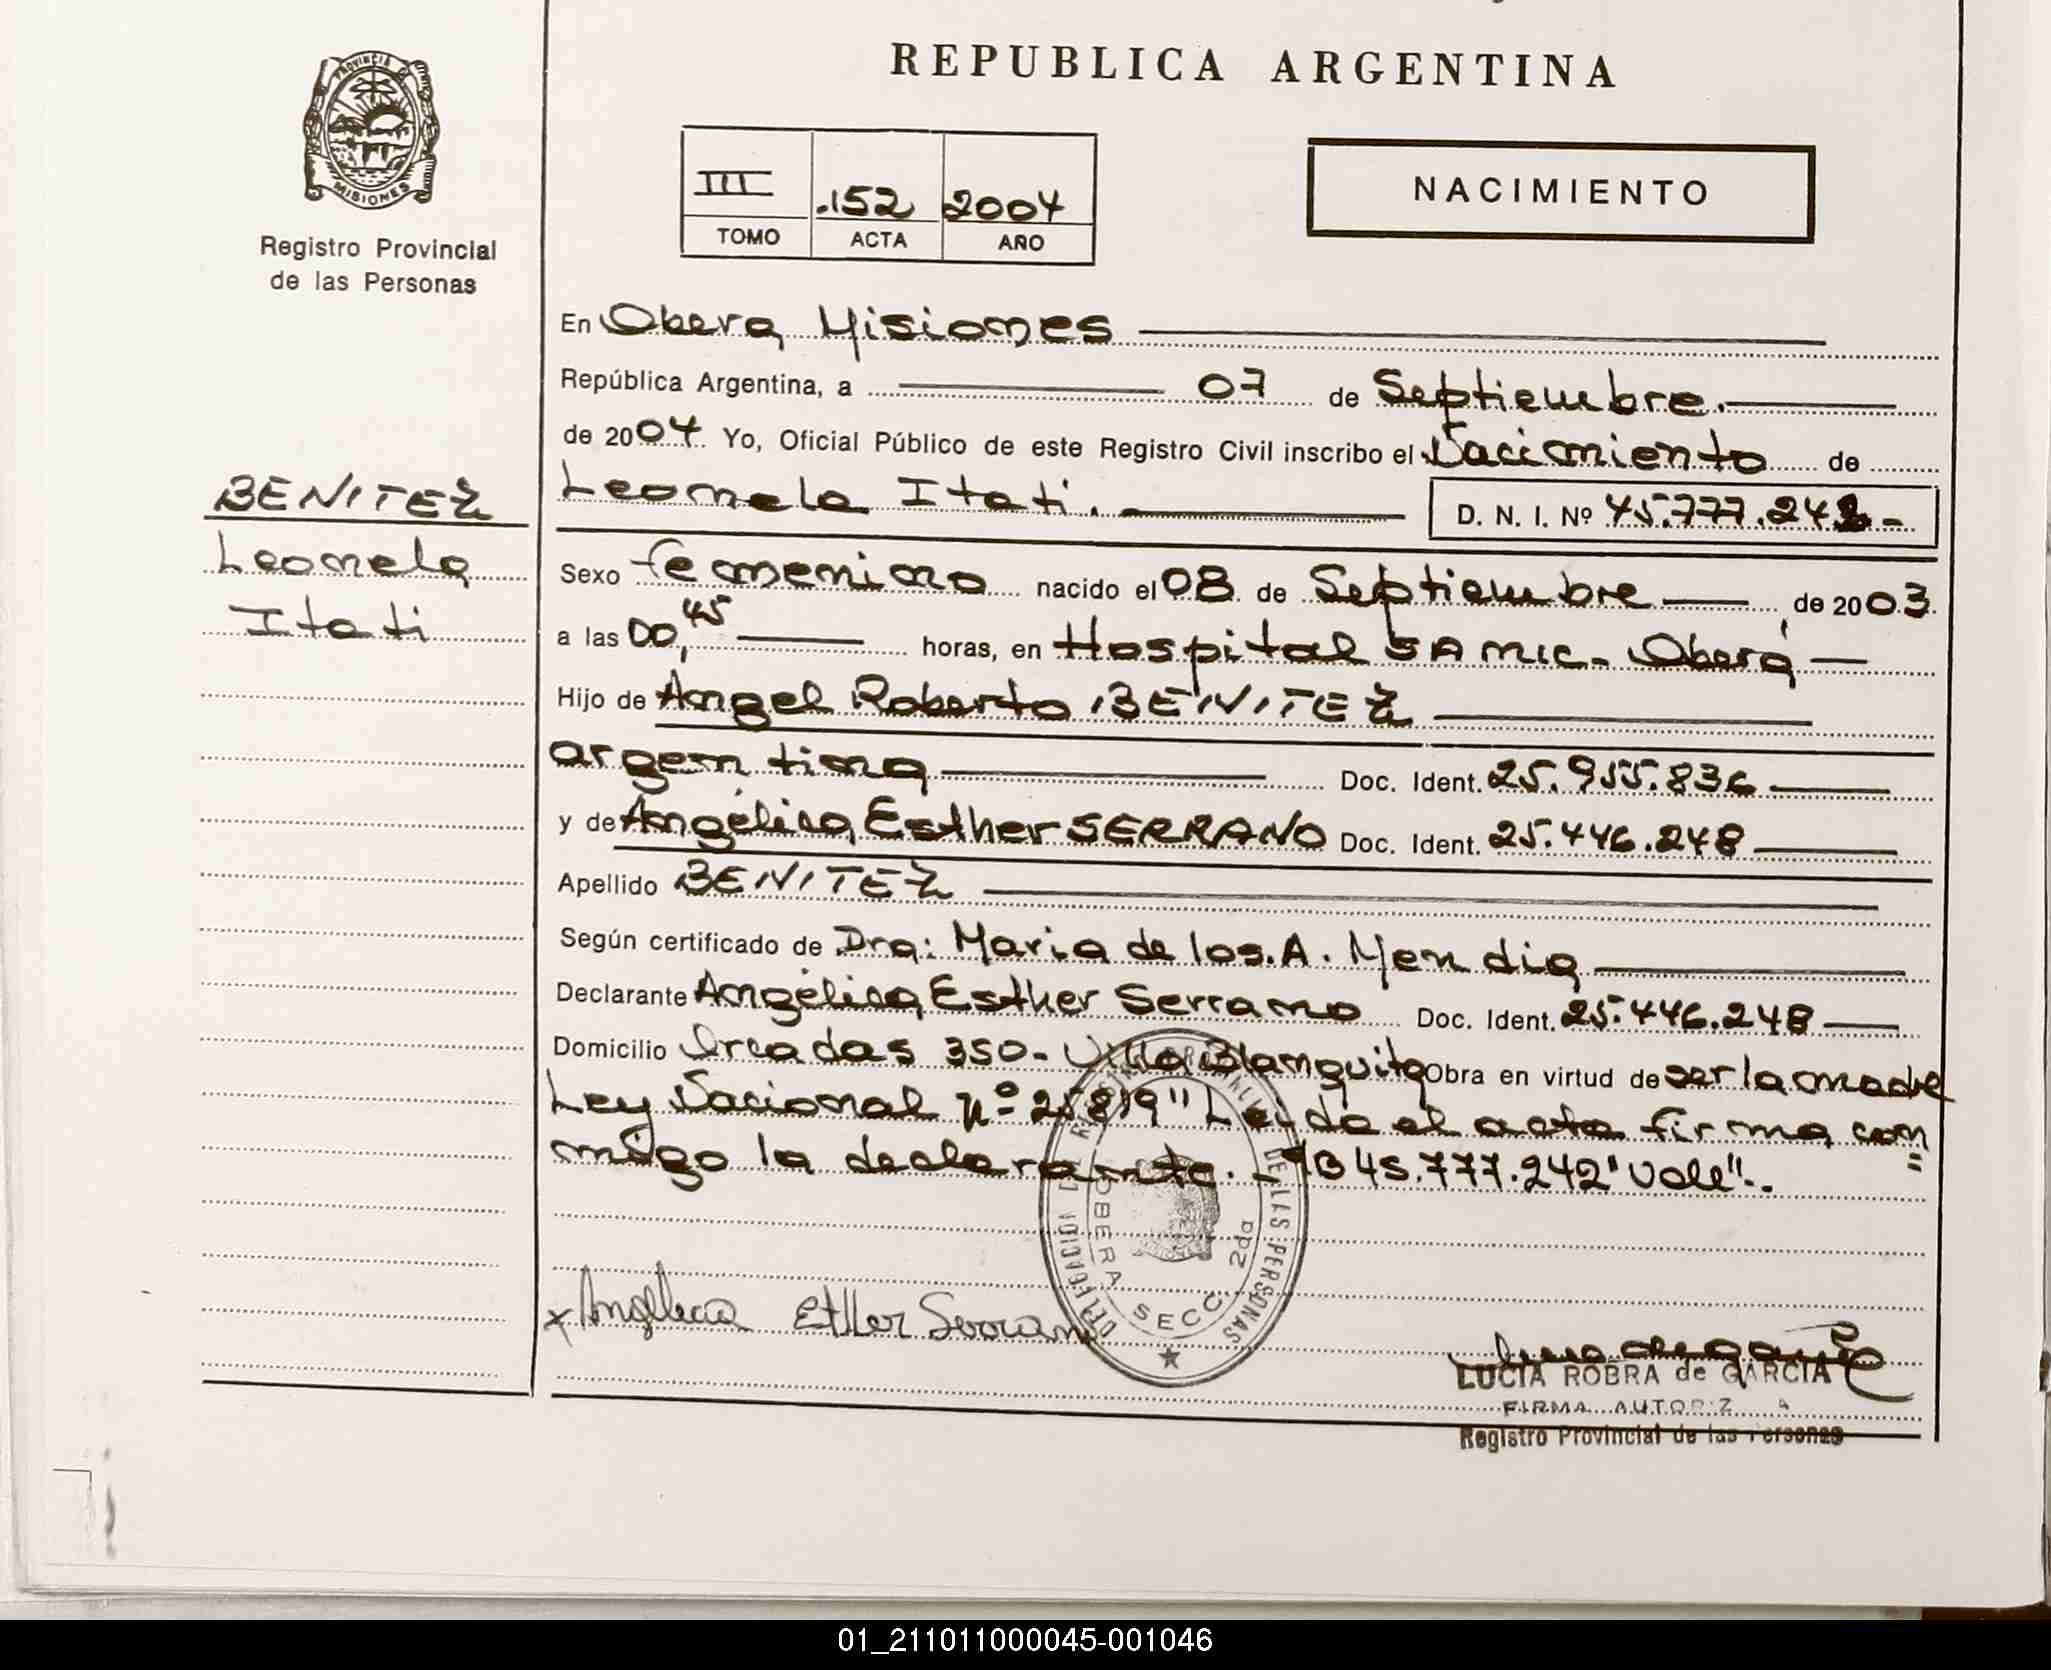 REPUBLICA ARGENTINA
PROVINCIA D MISIONES
Registro Provincial
de las Personas
III .152 2004
TOMO ACTA AÑO
NACIMIENTO
En Obera Misiones
República Argentina, a 07 de Septiembre.
de 2004. Yo, Oficial Público de este Registro Civil inscribo el Nacimiento de
Leonela Itati. D. N. I. Nº 45.777.242-
BENITEZ
Leonela
Itati
Sexo femenino nacido el 08 de Septiembre de 2003.
a las 00,45 horas, en Hospital SAMIC- Oberá
Hijo de Angel Roberto BENITEZ
argentina Doc. Ident. 25.955.836
y de Angélica Esther SERRANO Doc. Ident. 25.446.248
Apellido BENITEZ
Según certificado de Dra: Maria de los.A. Mendia
Declarante Angélica Esther Serrano Doc. Ident. 25.446.248
Domicilio Orcadas 350- Villa Blanquita Obra en virtud de ser la madre
Ley Nacional nº 25819" Leida el acta firma con=
migo la declarante. - "B 45.777.242" Vale".
DELEGACION DEL REGISTRO PROVINCIAL DE LAS PERSONAS
OBERA SECC. 2da
x Angelica Esther Serrano
LUCIA ROBRA de GARCIA
FIRMA AUTORIZ A
Registro Provincial de las Personas
01_211011000045-001046